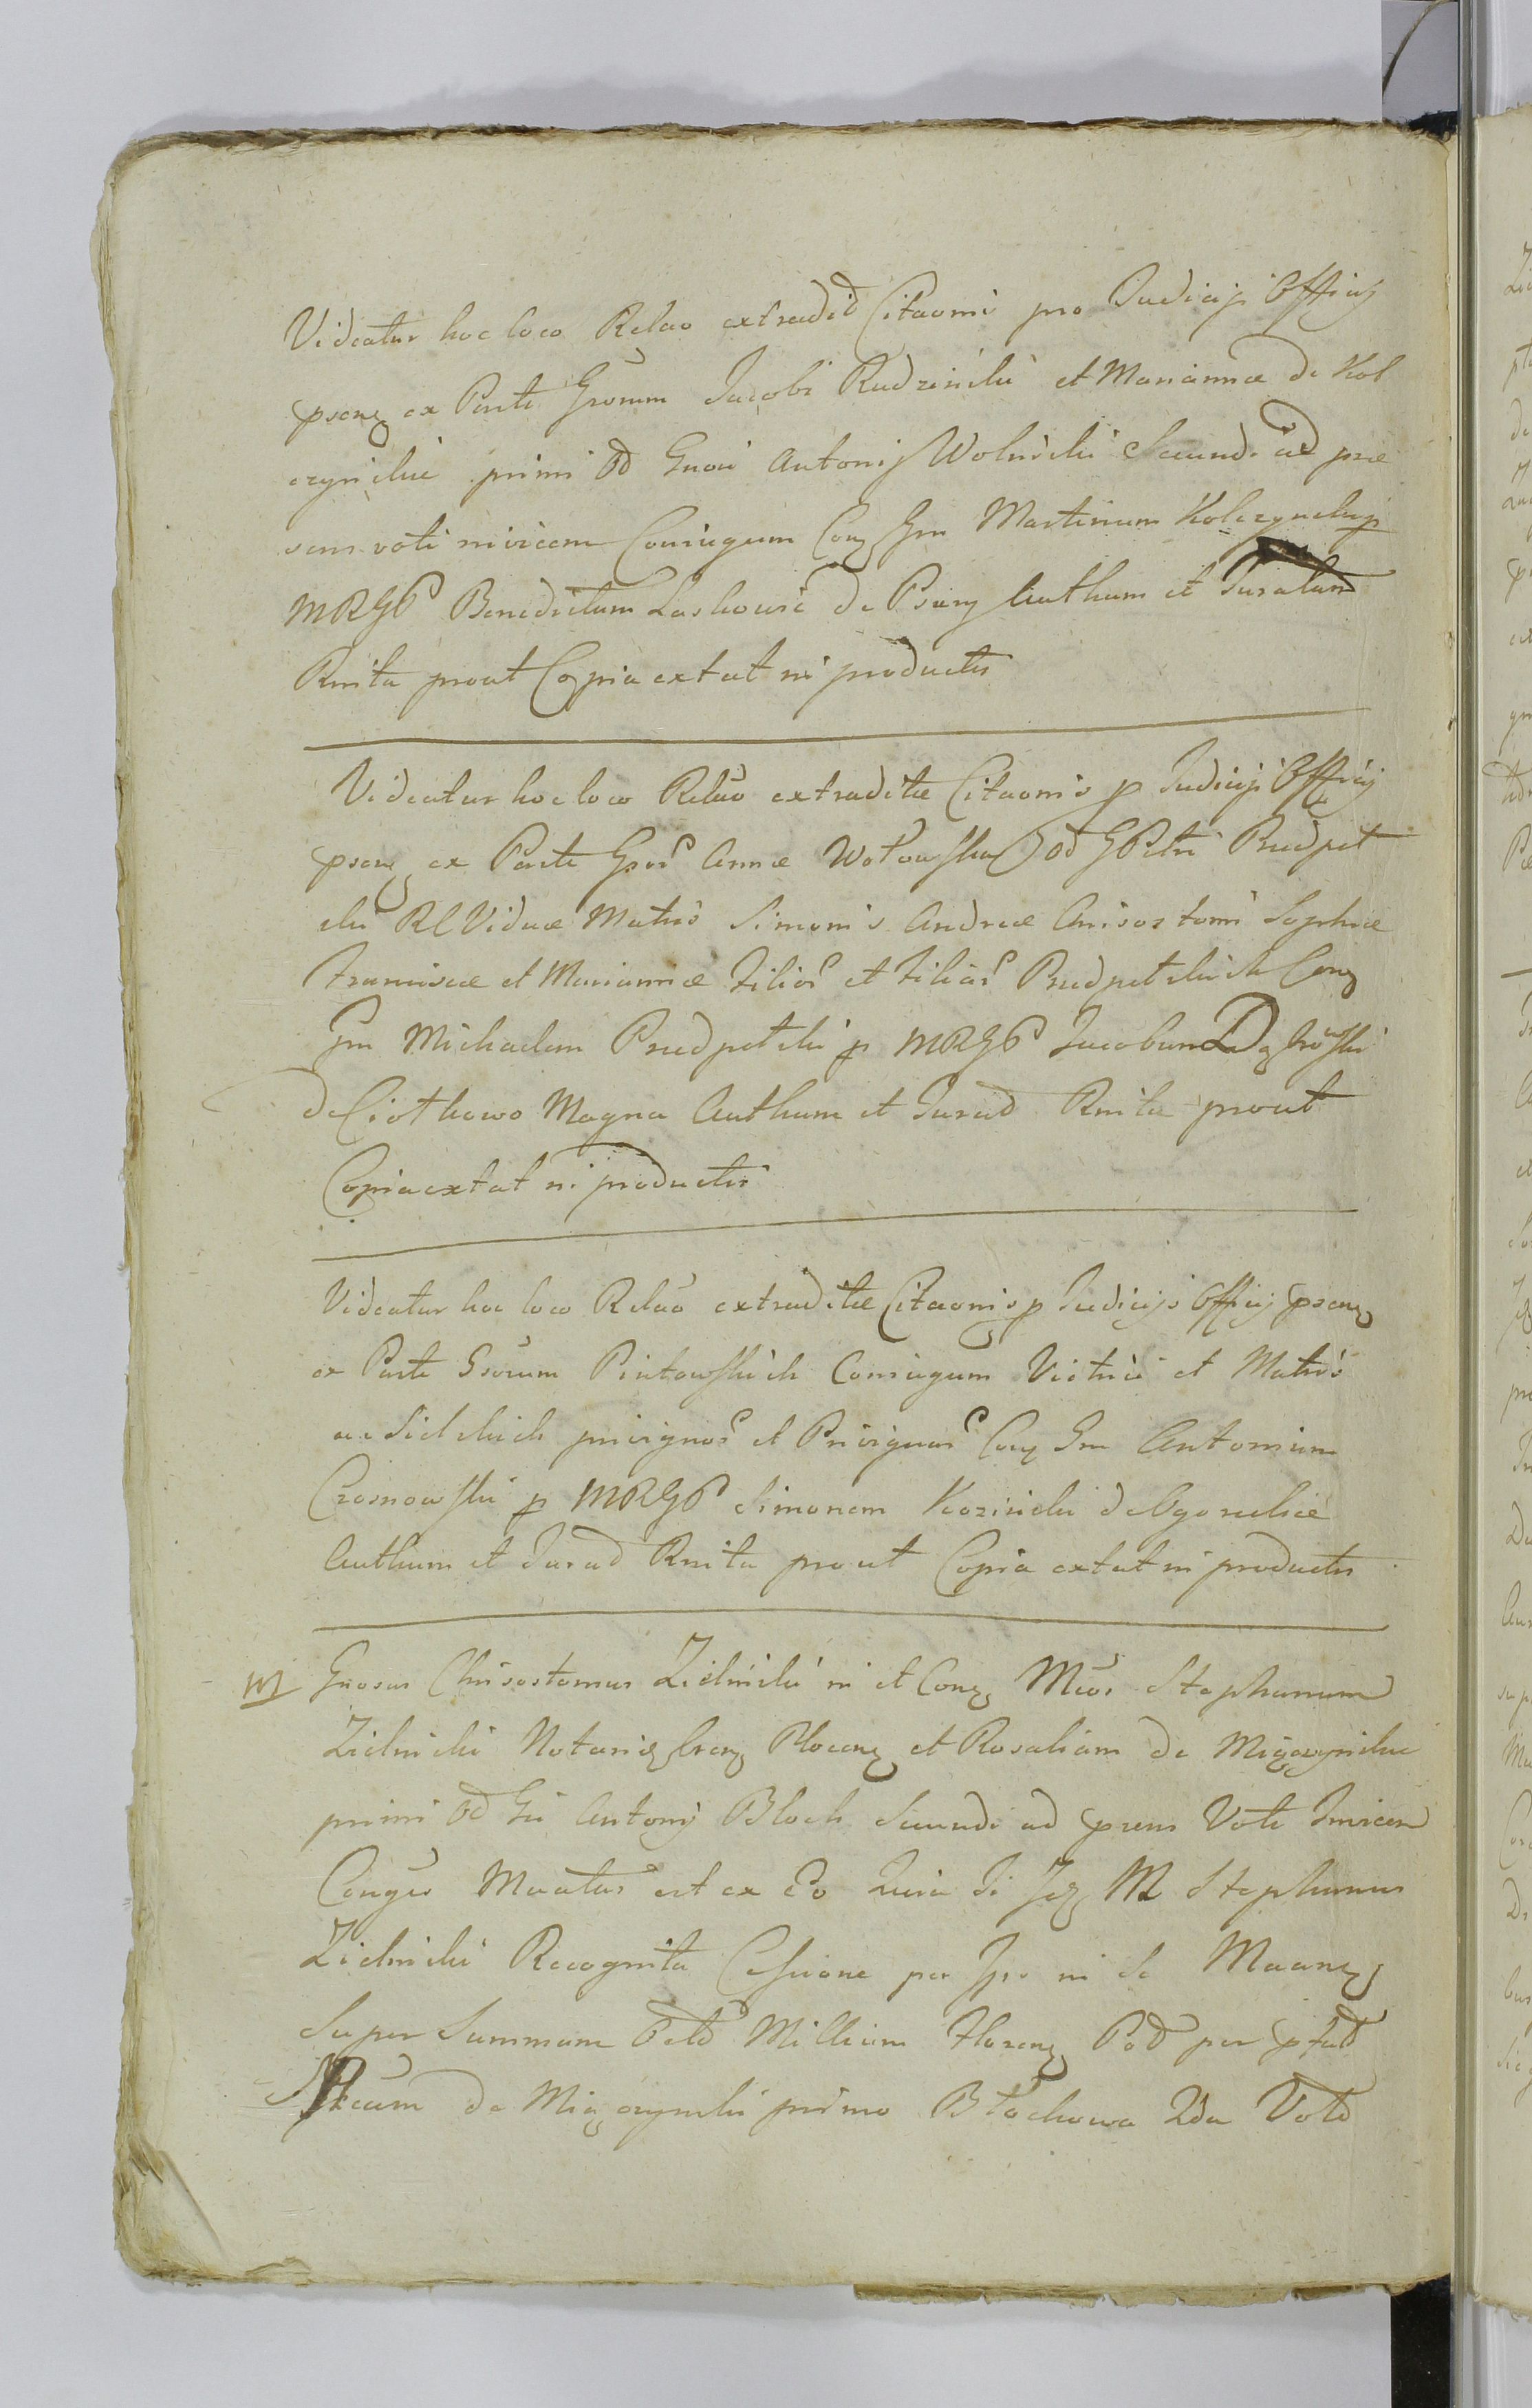 Videatur hoc loco Relao extradit Citaonis pro Judicijs Officij
psenz ex Parte Grorum Jacobi Rudzinski et Mariannæ de Kol
czynskie primi od Gnosi Antonij Wolnicki Secundi ad præ
sens voti invicem Conjugum Con Gm Martinum Kolczynski p
MRGP Benedictum Laskowic de Psary Authum et Juratum
Rnita prout Copia extat in productis
Videatur hoc loco Relao extraditæ Citaonis p Judicijs Officij
psenz ex Parte Gros Annæ Wołowska od GPetri Przedpeł
ski Rl Viduæ Matris Simonis Andreæ Chrisostomi Sophiæ
Franciscæ et Mariannæ Filios et Filias Przedpełskich Con
Gm Michaelem Przedpełski p MRGP Jacobum Dąbrowski
de Ciothowo Magna Authum et Jurad Rnita prout
Copia extat in productis
Videatur hoc loco Relao extraditæ Citaonis p Judicijs Officij psenz
ex Parte Gsorum Piotowskich Conjugum Vitrici et Matris
ac Sielskich privignos et Privignas Con Gm Antonium
Czosnowski p MRGP Simonem Kozicki de Ogorzelice
Authum et Jurad Rnita prout Copia extat in productis
M Gnosus Chrisostomus Zielinski in et Con Mcos Stephanum
Zielinski Notariz Crenz Plocenz et Rosaliam de Miączynskie
primi od Gi Antonij Bloch Secundi ad præns Voti Invicem
Conges Muatus est ex Eo Quia Ii Idz M Stephanus
Zielinski Recognita Cessione per Ips in se Muanz
Super Summam Octo Millium Florenz Pol per ptad
Mcam de Miączynski primo Błochowa 2da Voto